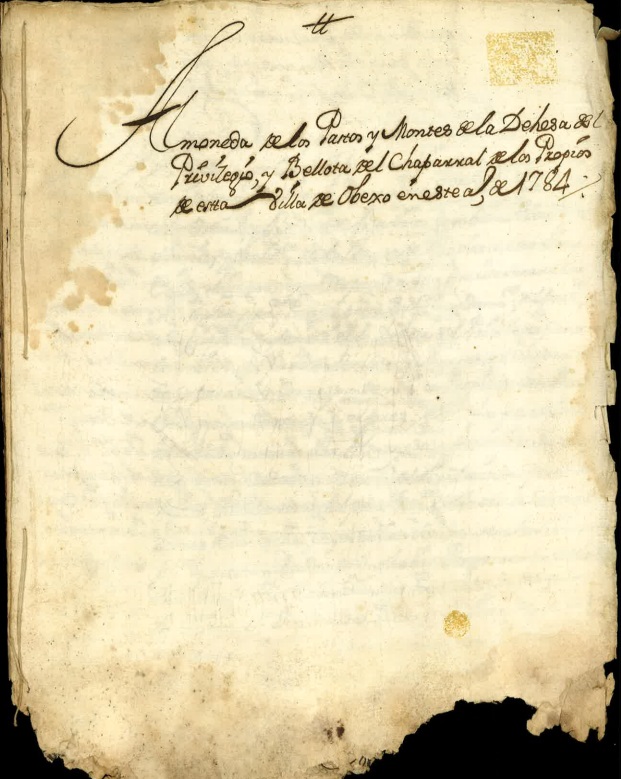 Almoneda de los Pastos y Montes de la Dehesa del
Privilegio, y Bellota del Chaparral de los Propios
de esta Villa de Obexo en este a, de 1784